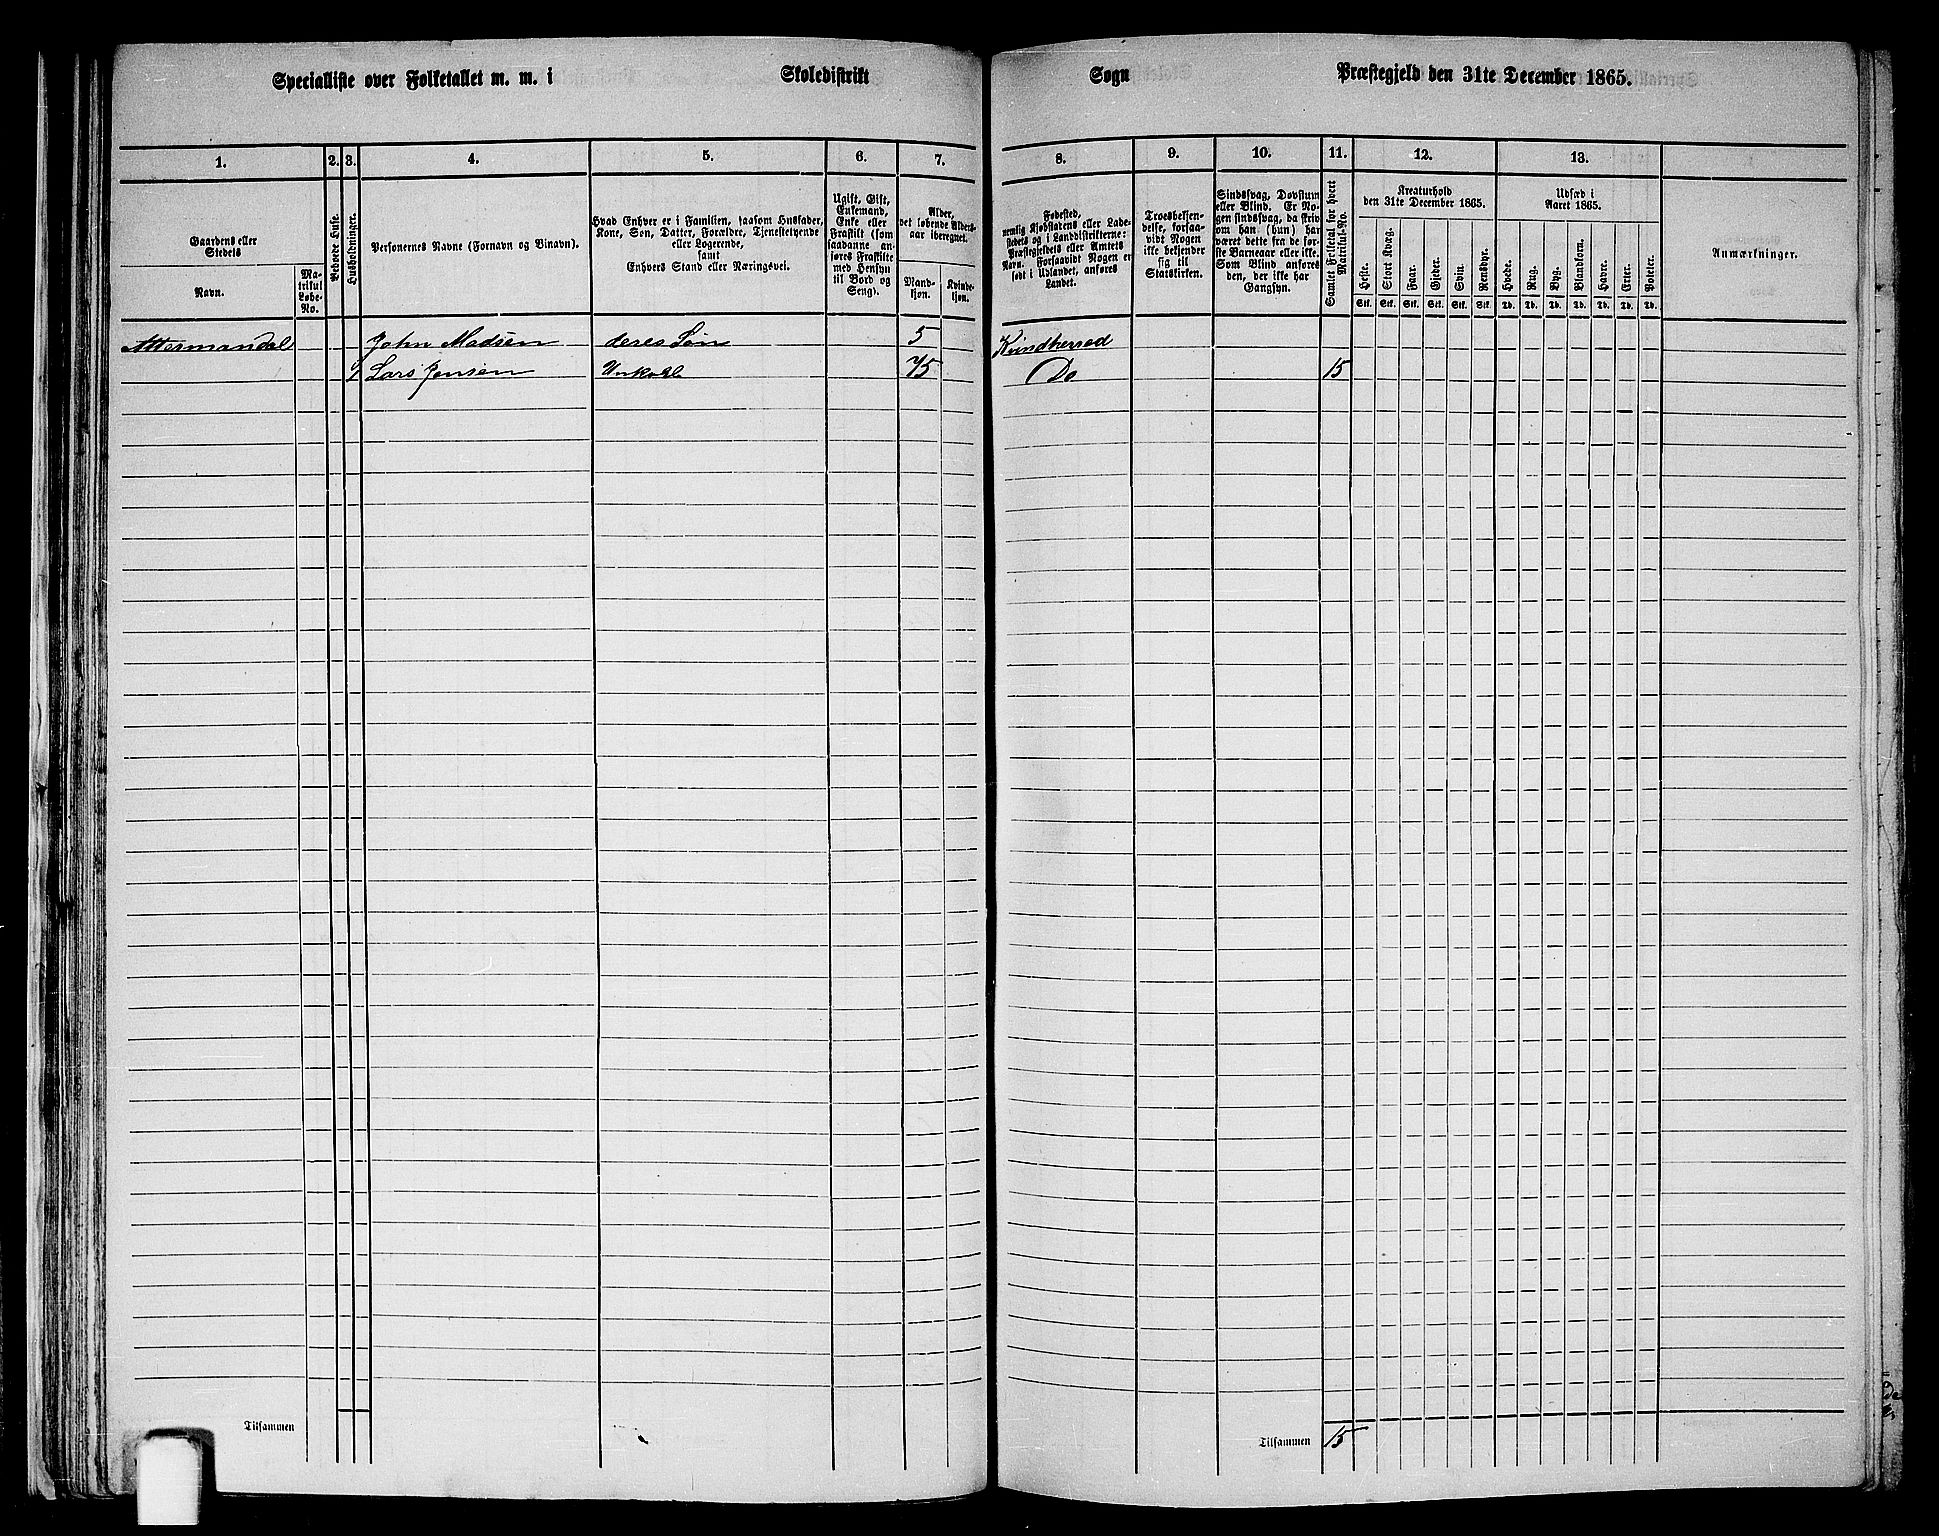 Specialliste over Folketallet m. m. i Skoledistrikt Sogn Præstegjeld den 31te December 1865.
1. 2. 3. 4. 5. 6. 7. 8. 9. 10. 11. 12. 13.
Gaardens eller Stedets
Navn.
Matrikul Løbe-No.
Beboede Huse.
Husholdninger.
Personernes Navne (Fornavn og Binavn).
Hvad Enhver er i Familien, saasom Husfader, Kone, Søn, Datter, Forældre, Tjenestetyende eller Logerende, samt Enhvers Stand eller Næringsvei.
Ugift, Gift, Enkemand, Enke eller Fraskilt (som saadanne anføres Fraskilte med Hensyn til Bord og Seng).
Alder, det løbende Alders-aar iberegnet.
Mand-kjøn.
Kvinde-kjøn.
Fødested, nemlig Kjøbstadens eller Ladestedets og i Landdistrikterne: Præstegjeldets eller Amtets Navn. Forsaavidt Nogen er født i Udlandet, anføres Landet.
Troesbekjendelse, forsaavidt Nogen ikke bekjender sig til Statskirken.
Sindssvag, Døvstum eller Blind. Er Nogen sindssvag, da skrives om han (hun) har været dette fra de første Barneaar eller ikke. Som Blind anføres den, der ikke har Gangsyn.
Samlet Folketal for hvert Matrikul-No.
Kreaturhold den 31te December 1865.
Heste. Stort Kvæg. Faar. Gjeder. Svin. Rensdyr.
Stk. Stk. Stk. Stk. Stk. Stk.
Udsæd i Aaret 1865.
Hvede. Rug. Byg. Blandkorn. Havre. Erter. Poteter.
Td. Td. Td. Td. Td. Td. Td.
Anmærkninger.
Attermandal John Madsen deres Søn 5 Kvindherred
1 Lars Jensen 75 Do 15
Tilsammen Tilsammen 15